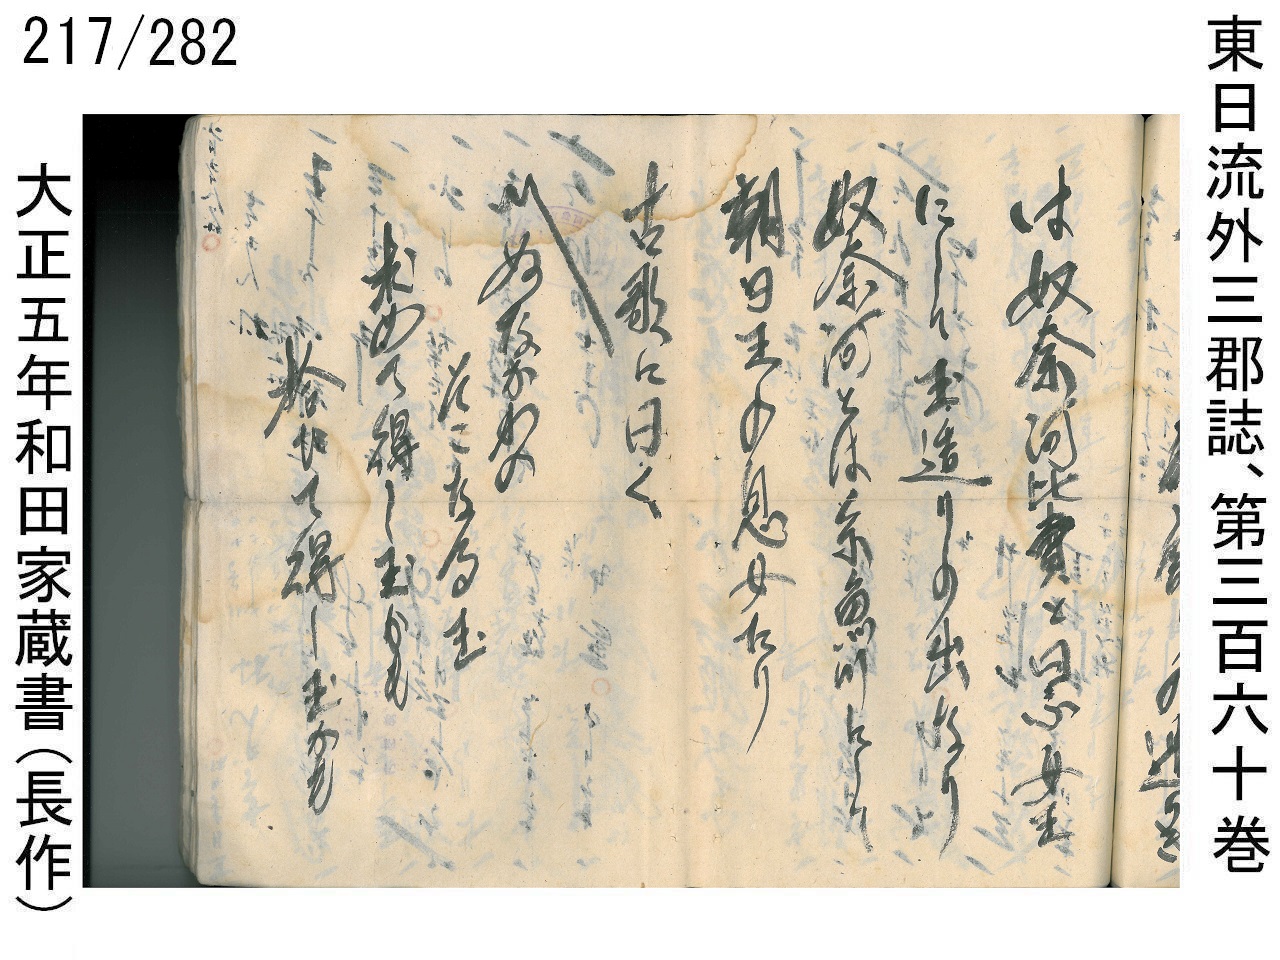 217/282
東日流外三郡誌、第三百六十巻
は奴奈河比賣と曰ふ女王
にして玉造りの出なり
奴奈河とは糸魚川にして
朝日王の息女たり
古歌に曰く
〽ぬながわの
そこなる玉
求めて得し玉かも
拾ひて得し玉かも
大正五年和田家蔵書（長作）